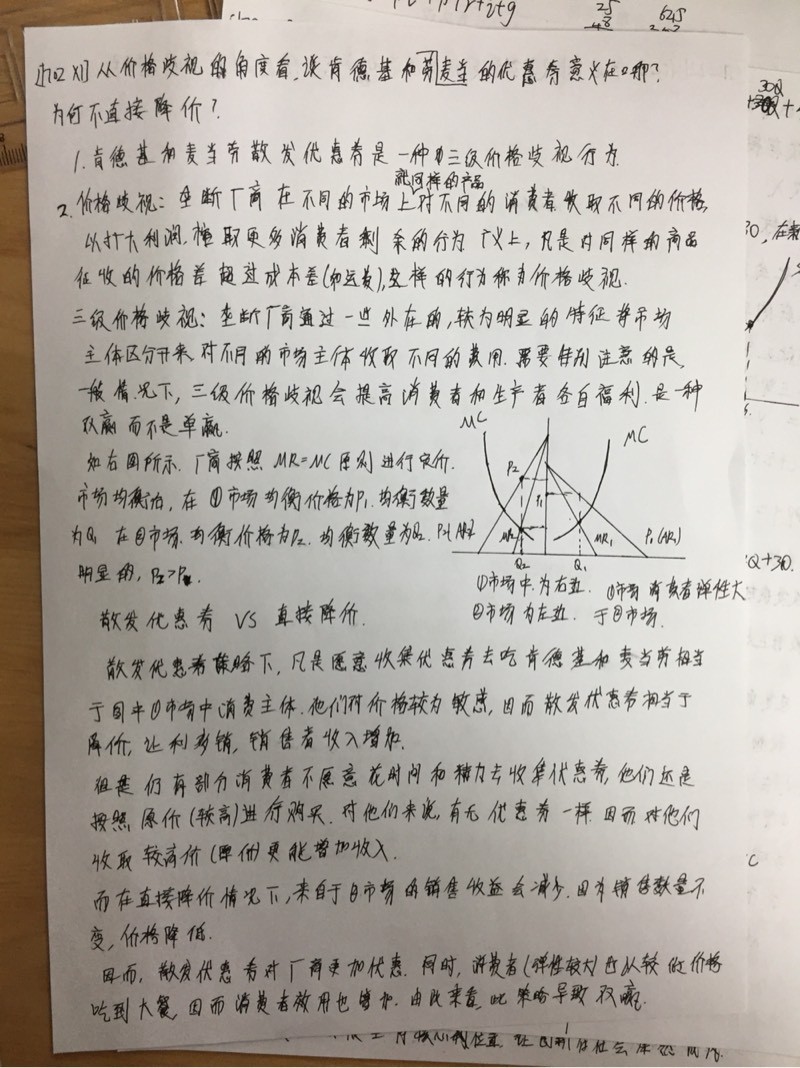 [702 X1] 从价格歧视的角度看,谈肯德基和麦当劳的优惠券意义在哪?
为何不直接降价?
1.肯德基和麦当劳散发优惠券是一种三级价格歧视行为.
就同样的产品
2.价格歧视:垄断厂商在不同的市场上对不同的消费者收取不同的价格,
以扩大利润,榨取更多消费者剩余的行为 广义上,凡是对同样的商品
征收的价格差超过成本差(如运费),这样的行为称为价格歧视.
三级价格歧视:垄断厂商通过一些外在的,较为明显的特征将市场
主体区分开来,对不同的市场主体收取不同的费用.需要特别注意的是,
一般情况下,三级价格歧视会提高消费者和生产者各自福利.是一种
双赢而不是单赢.
MC
MC
P2
P1
MR2
MR1
P1(AR1)
P2(AR2)
Q2
Q1
如右图所示.厂商按照MR=MC原则进行定价.
市场均衡为,在①市场均衡价格为P1.均衡数量
为Q1 在②市场.均衡价格为P2.均衡数量为Q2.
明显的,P2>P1.
①市场中.为右边. ①市场消费者弹性大
②市场为左边. 于②市场.
散发优惠券 VS 直接降价.
散发优惠券策略下,凡是愿意收集优惠券去吃肯德基和麦当劳相当
于图中①市场中消费主体.他们对价格较为敏感,因而散发优惠券相当于
降价,让利多销,销售者收入增加.
但是仍有部分消费者不愿意花时间和精力去收集优惠券,他们还是
按照原价(较高)进行购买.对他们来说,有无优惠券一样.因而对他们
收取较高价(原价)更能增加收入.
而在直接降价情况下,来自于②市场的销售收益会减少.因为销售数量不
变,价格降低.
因而,散发优惠券对厂商更加优惠.同时,消费者(弹性较大)已从较低价格
吃到大餐,因而消费者效用也增加.由此来看,此策略导致双赢.